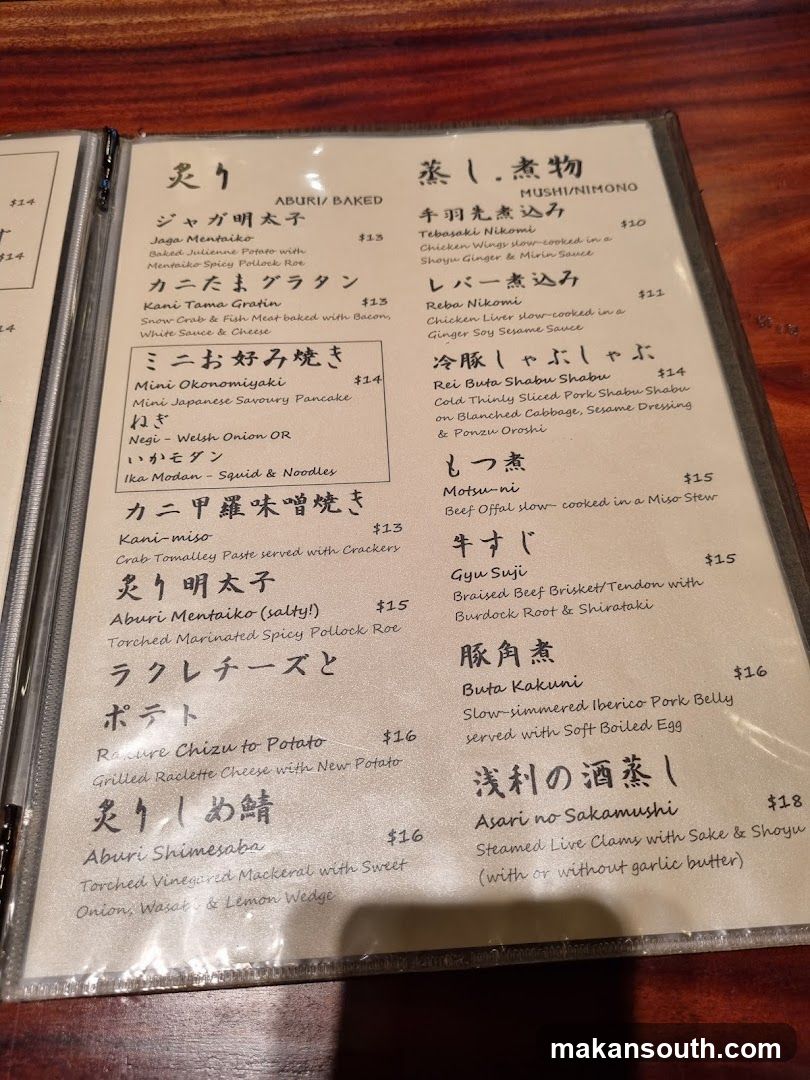 $14
$14
炙り
ABURI/ BAKED
ジャガ明太子
Jaga Mentaiko $13
Baked Julienne Potato with
Mentaiko Spicy Pollock Roe
カニたまグラタン
Kani Tama Gratin $13
Snow Crab & Fish Meat baked with Bacon,
White Sauce & Cheese
ミニお好み焼き
Mini Okonomiyaki $14
Mini Japanese Savoury Pancake
ねぎ
Negi - Welsh Onion OR
いかモダン
Ika Modan - Squid & Noodles
カニ甲羅味噌焼き
Kani-miso $13
Crab Tomalley Paste served with Crackers
炙り明太子
Aburi Mentaiko (salty!) $15
Torched Marinated Spicy Pollock Roe
ラクレチーズと
ポテト
Rakure Chizu to Potato $16
Grilled Raclette Cheese with New Potato
炙りしめ鯖
Aburi Shimesaba $16
Torched Vinegared Mackeral with Sweet
Onion, & Lemon Wedge
蒸し.煮物
MUSHI/NIMONO
手羽先煮込み
Tebasaki Nikomi $10
Chicken Wings slow-cooked in a
Shoyu Ginger & Mirin Sauce
レバー煮込み
Reba Nikomi $11
Chicken Liver slow-cooked in a
Ginger Soy Sesame Sauce
冷豚しゃぶしゃぶ
Rei Buta Shabu Shabu $14
Cold Thinly Sliced Pork Shabu Shabu
on Blanched Cabbage, Sesame Dressing
& Ponzu Oroshi
もつ煮
Motsu-ni $15
Beef Offal slow- cooked in a Miso Stew
牛すじ
Gyu Suji $15
Braised Beef Brisket/Tendon with
Burdock Root & Shirataki
豚角煮
Buta Kakuni $16
Slow-simmered Iberico Pork Belly
served with Soft Boiled Egg
浅利の酒蒸し
Asari no Sakamushi $18
Steamed Live Clams with Sake & Shoyu
(with or without garlic butter)
makansouth.com